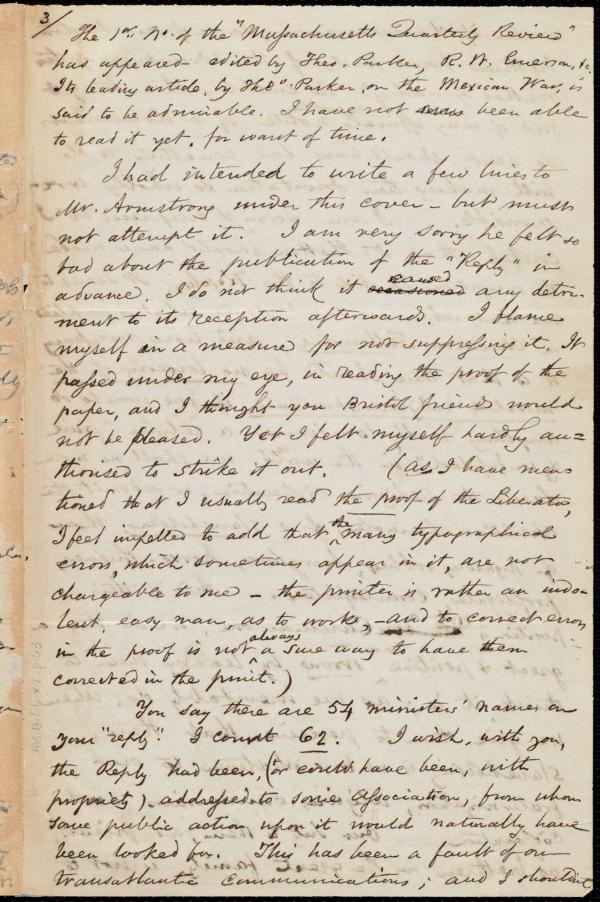 3/
The 1st. No. of the "Massachusetts Quarterly Review"
has appeared - edited by Theo. Parker, R. W. Emerson, &c.
Its leading article, by Theo. Parker, on the Mexican War, is
said to be admirable. I have not been able
to read it yet, for want of time.
I had intended to write a few lines to
Mr. Armstrong under this cover - but must
not attempt it. I am very sorry he felt so
bad about the publication of the "Reply" in
advance. I do not think it occasioned caused any detri-
ment to its reception afterwards. I blame
myself in a measure for not suppressing it. It
passed under my eye, in reading the proof of the
paper, and I thought you Bristol friends would
not be pleased. Yet I felt myself hardly au=
thorised to strike it out. (As I have men-
tioned that I usually read the proof of the Liberator,
I feel impelled to add that the many typographical
errors, which sometimes appear in it, are not
chargeable to me - the printer is rather an indo-
lent, easy man, as to work, - and to correct errors
in the proof is not always a sure way to have them
corrected in the print.)
You say there are 54 ministers' names on
your "reply". I count 62. I wish, with you,
the Reply had been, (or could have been, with
propriety) addressed to some Association, from whom
some public action upon it would naturally have
been looked for. This has been a fault of our
transatlantic communications; and I should